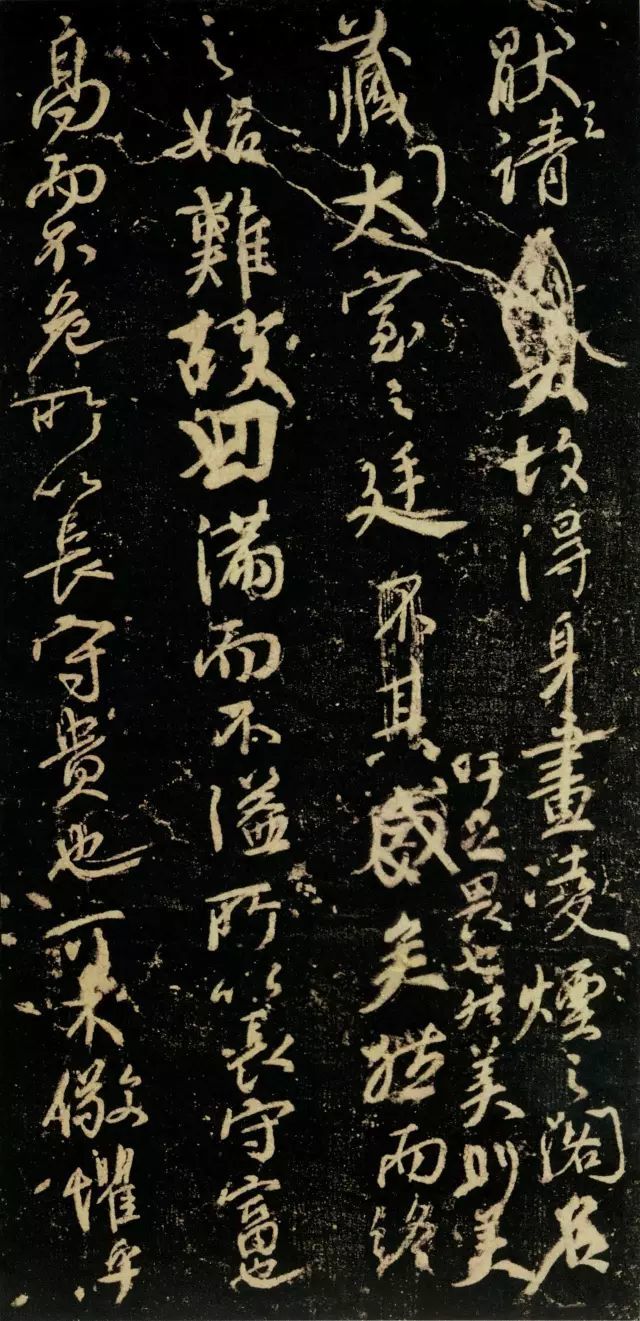 猒之請故得身畫凌煙之閣名
藏太室之廷不其盛矣然而終
吁足畏也然美則美
之始難故曰滿而不溢所以長守富也
高而不危所以長守貴也可不儆懼乎